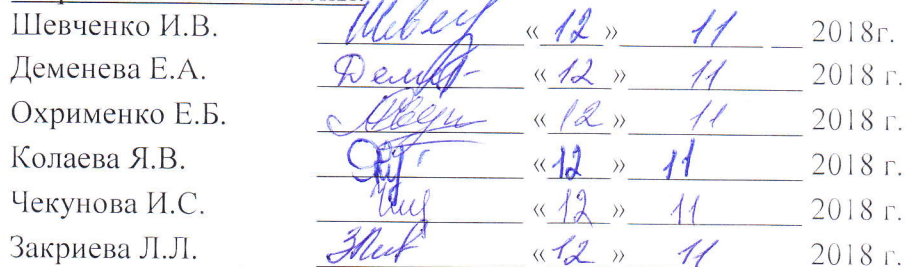 Шевченко И.В. «12» 11 2018г.
Деменева Е.А. «12» 11 2018 г.
Охрименко Е.Б. «12» 11 2018 г.
Колаева Я.В. «12» 11 2018 г.
Чекунова И.С. «12» 11 2018 г.
Закриева Л.Л. «12» 11 2018 г.